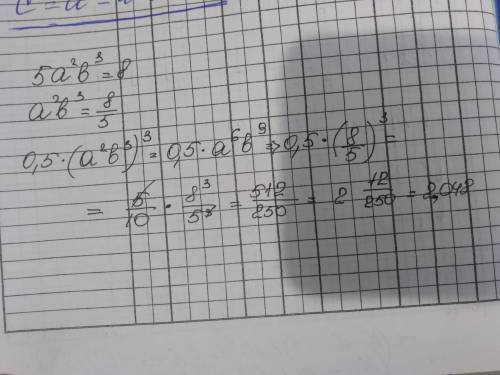 5a²b³=8
a²b³=8/5
0,5·(a²b³)³=0,5·a⁶b⁹⇒0,5·(8/5)³=
= 5/10 · 8³/5³ = 512/250 = 2 12/250 = 2,048